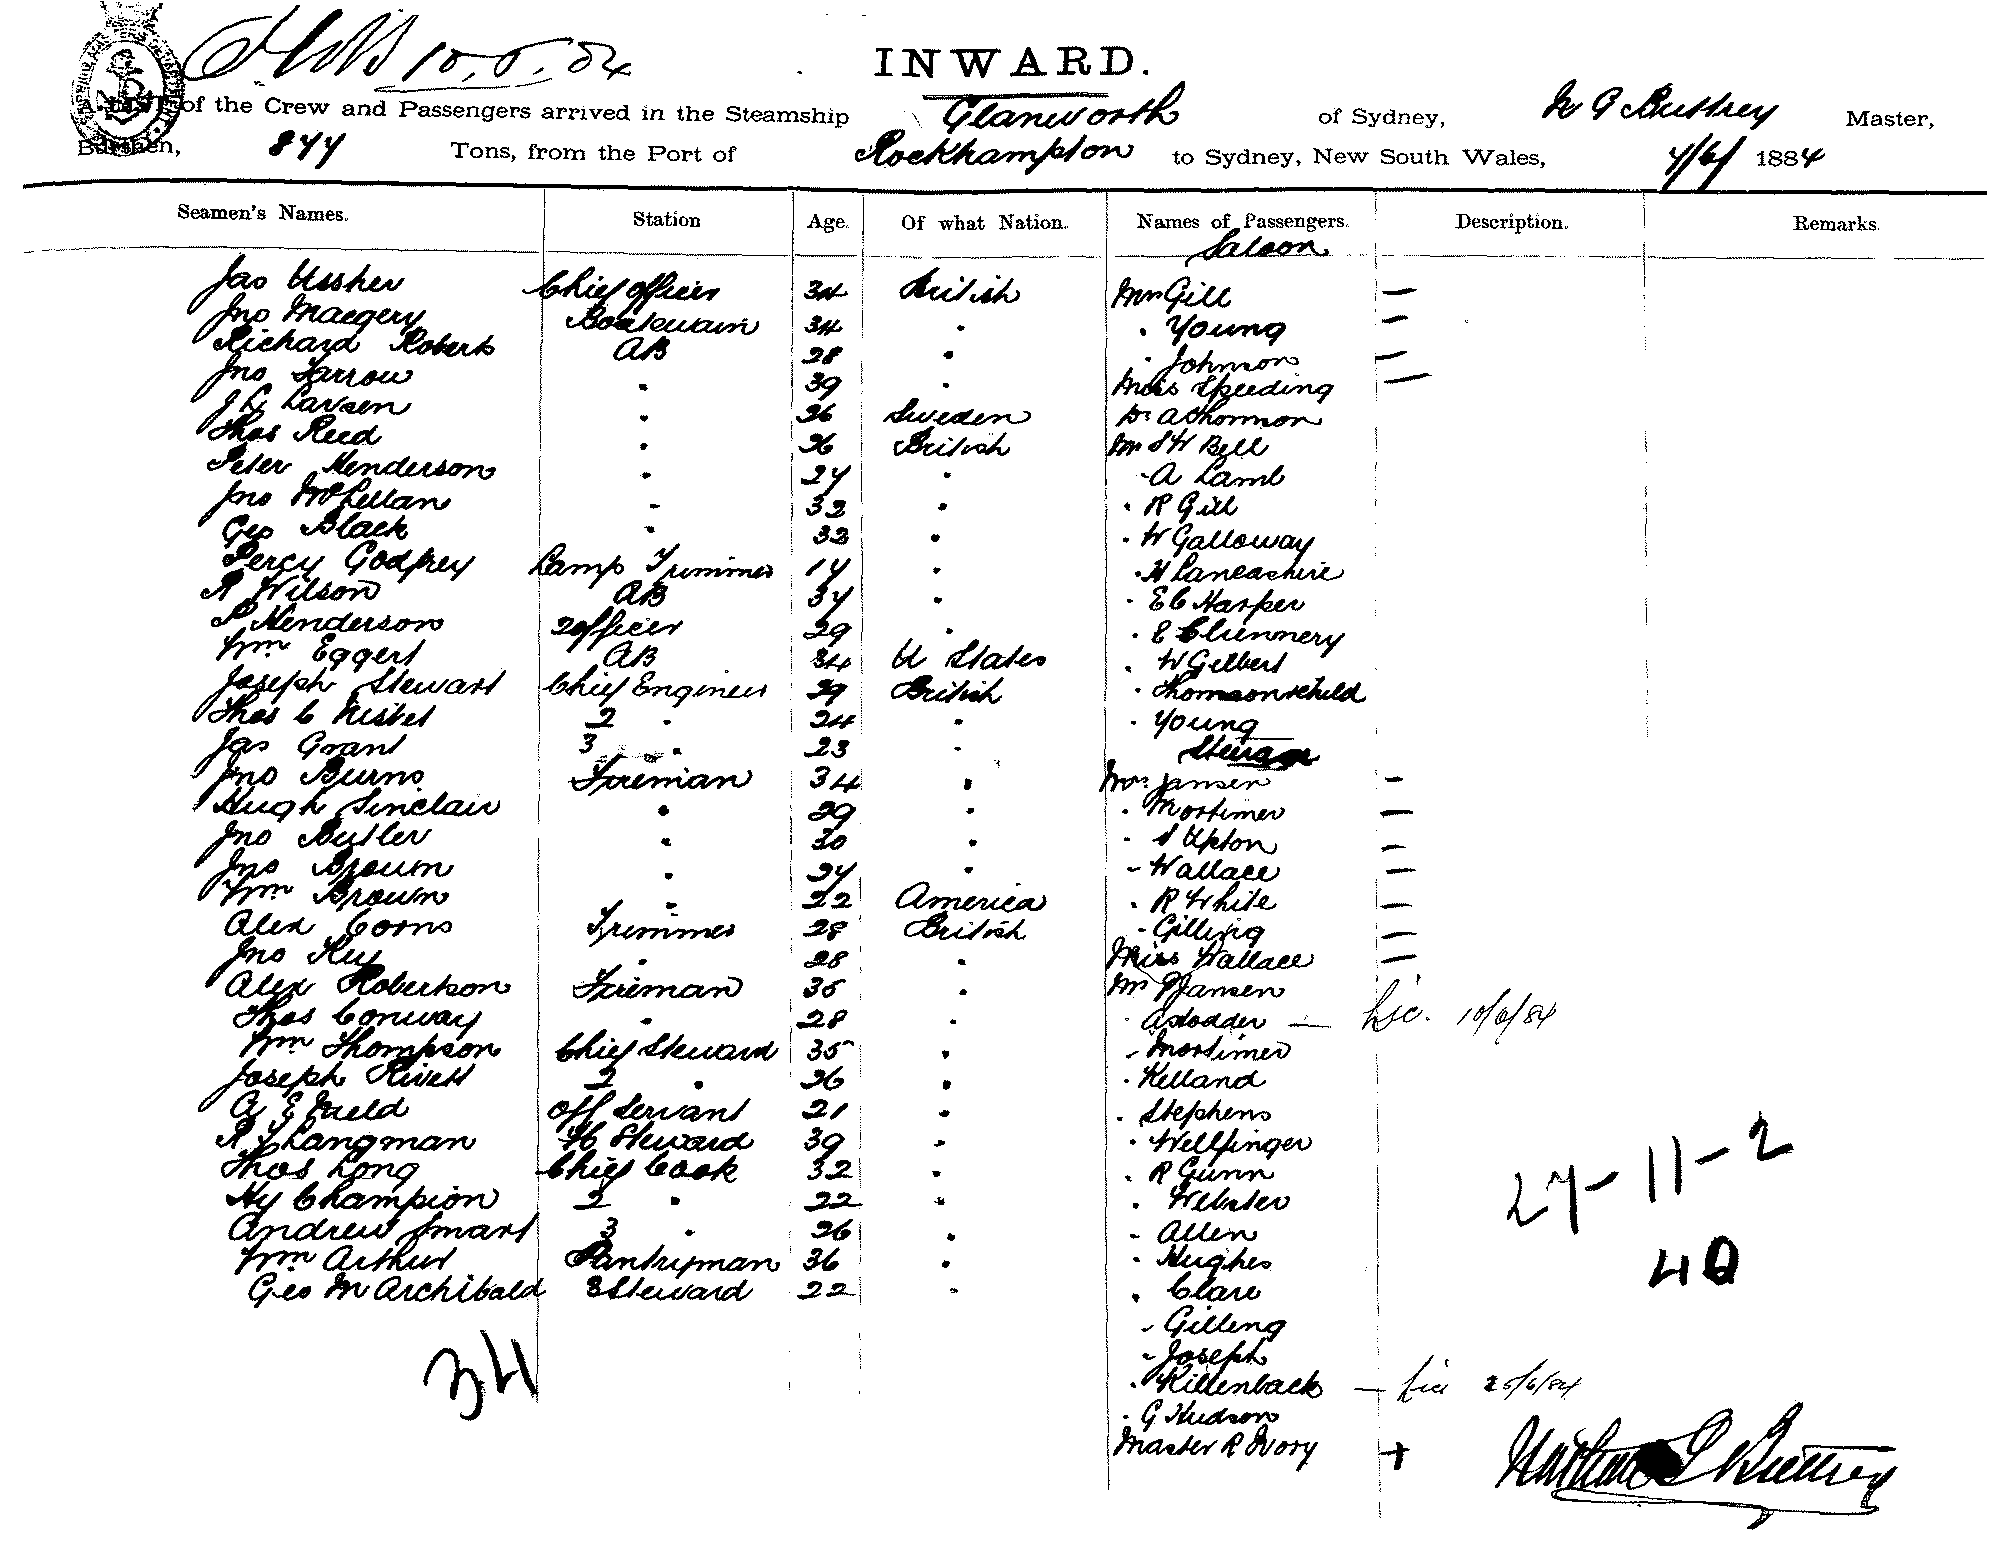 10.6.84
INWARD.
A LIST of the Crew and Passengers arrived in the Steamship Glanworth of Sydney, N G Buttrey Master,
Burthen, 877 Tons, from the Port of Rockhampton to Sydney, New South Wales, 7/6/ 1884
Seamen's Names. Station Age. Of what Nation. Names of Passengers. Description. Remarks.
Saloon
Jas Ussher Chief officer 34 British Mrs Gill —
Jno Maegery Boatswain 34 " " Young —
Richard Roberts AB 28 " " Johnson —
Jno Farrow " 39 " Miss Speeding —
Larsen " 26 Sweden Dr A Thomson
Thos Reed " 26 British Mr Bell
Peter Henderson " 27 " " A Lamb
Jno McLellan " 32 " " R Gill
Geo Black " 33 " " W Galloway
Percy Godfrey Lamp Trimmer 17 " " H Lancashire
R Wilson AB 37 " " E C Harper
P Henderson 2 officer 29 " " E Chennery
Wm Eggert AB 34 U States " W Gilbert
Joseph Stewart Chief Engineer 29 British " Thomson & child
Thos C Nisbet 2 " 24 " " Young
Jas Grant 3 " 23 " Steerage
Jno Burns Fireman 34 " Mrs Jansen —
Hugh Sinclair " 29 " " Mortimer —
Jno Butler " 30 " " S Upton —
Jno Brown " 27 " " Wallace —
Wm Brown " 22 America " R White —
Alex Coons Trimmer 28 British " Gilling —
Jno Key " 28 " Miss Wallace —
Alex Robertson Fireman 35 " Mr P Jansen
Thos Conway " 28 " " — Lic. 10/6/84
Wm Thompson Chief Steward 35 " " Mortimer
Joseph Rivett 2 " 26 " " Kelland
A E Mield off Servant 21 " " Stephens
R J Langman Steward 39 " " Wellfinger
Thos Long Chief Cook 32 " " R Gunn
Hy Champion 2 " 22 " " Webster
Andrew Smart 3 " 26 " " Allen
Wm Arthur Pantryman 36 " " Hughes
Geo M Archibald Steward 22 " " Clare
" Gilling
" Joseph
" Killenback — Lic 25/6/84
" G Hudson
Master R Ivory +
27-11-2
40
34
Nathan G Buttrey